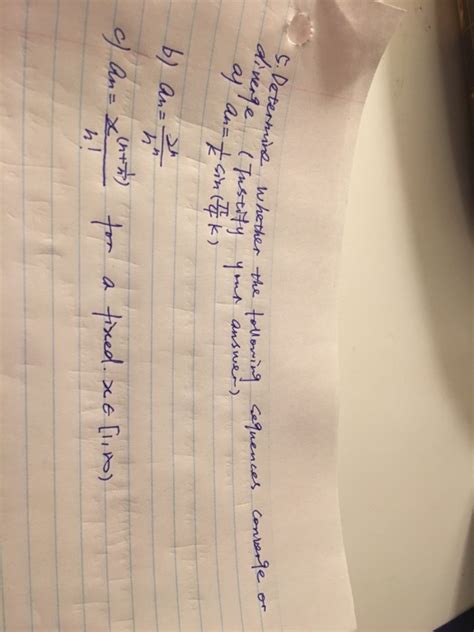 5. Determine whether the following sequences converge or
diverge (Justify your answer)
a) an = 1/k sin(π/4 k)
b) an = 2^n / n^n
c) an = x^(n+1/n) / n! for a fixed. x ∈ [1,∞)